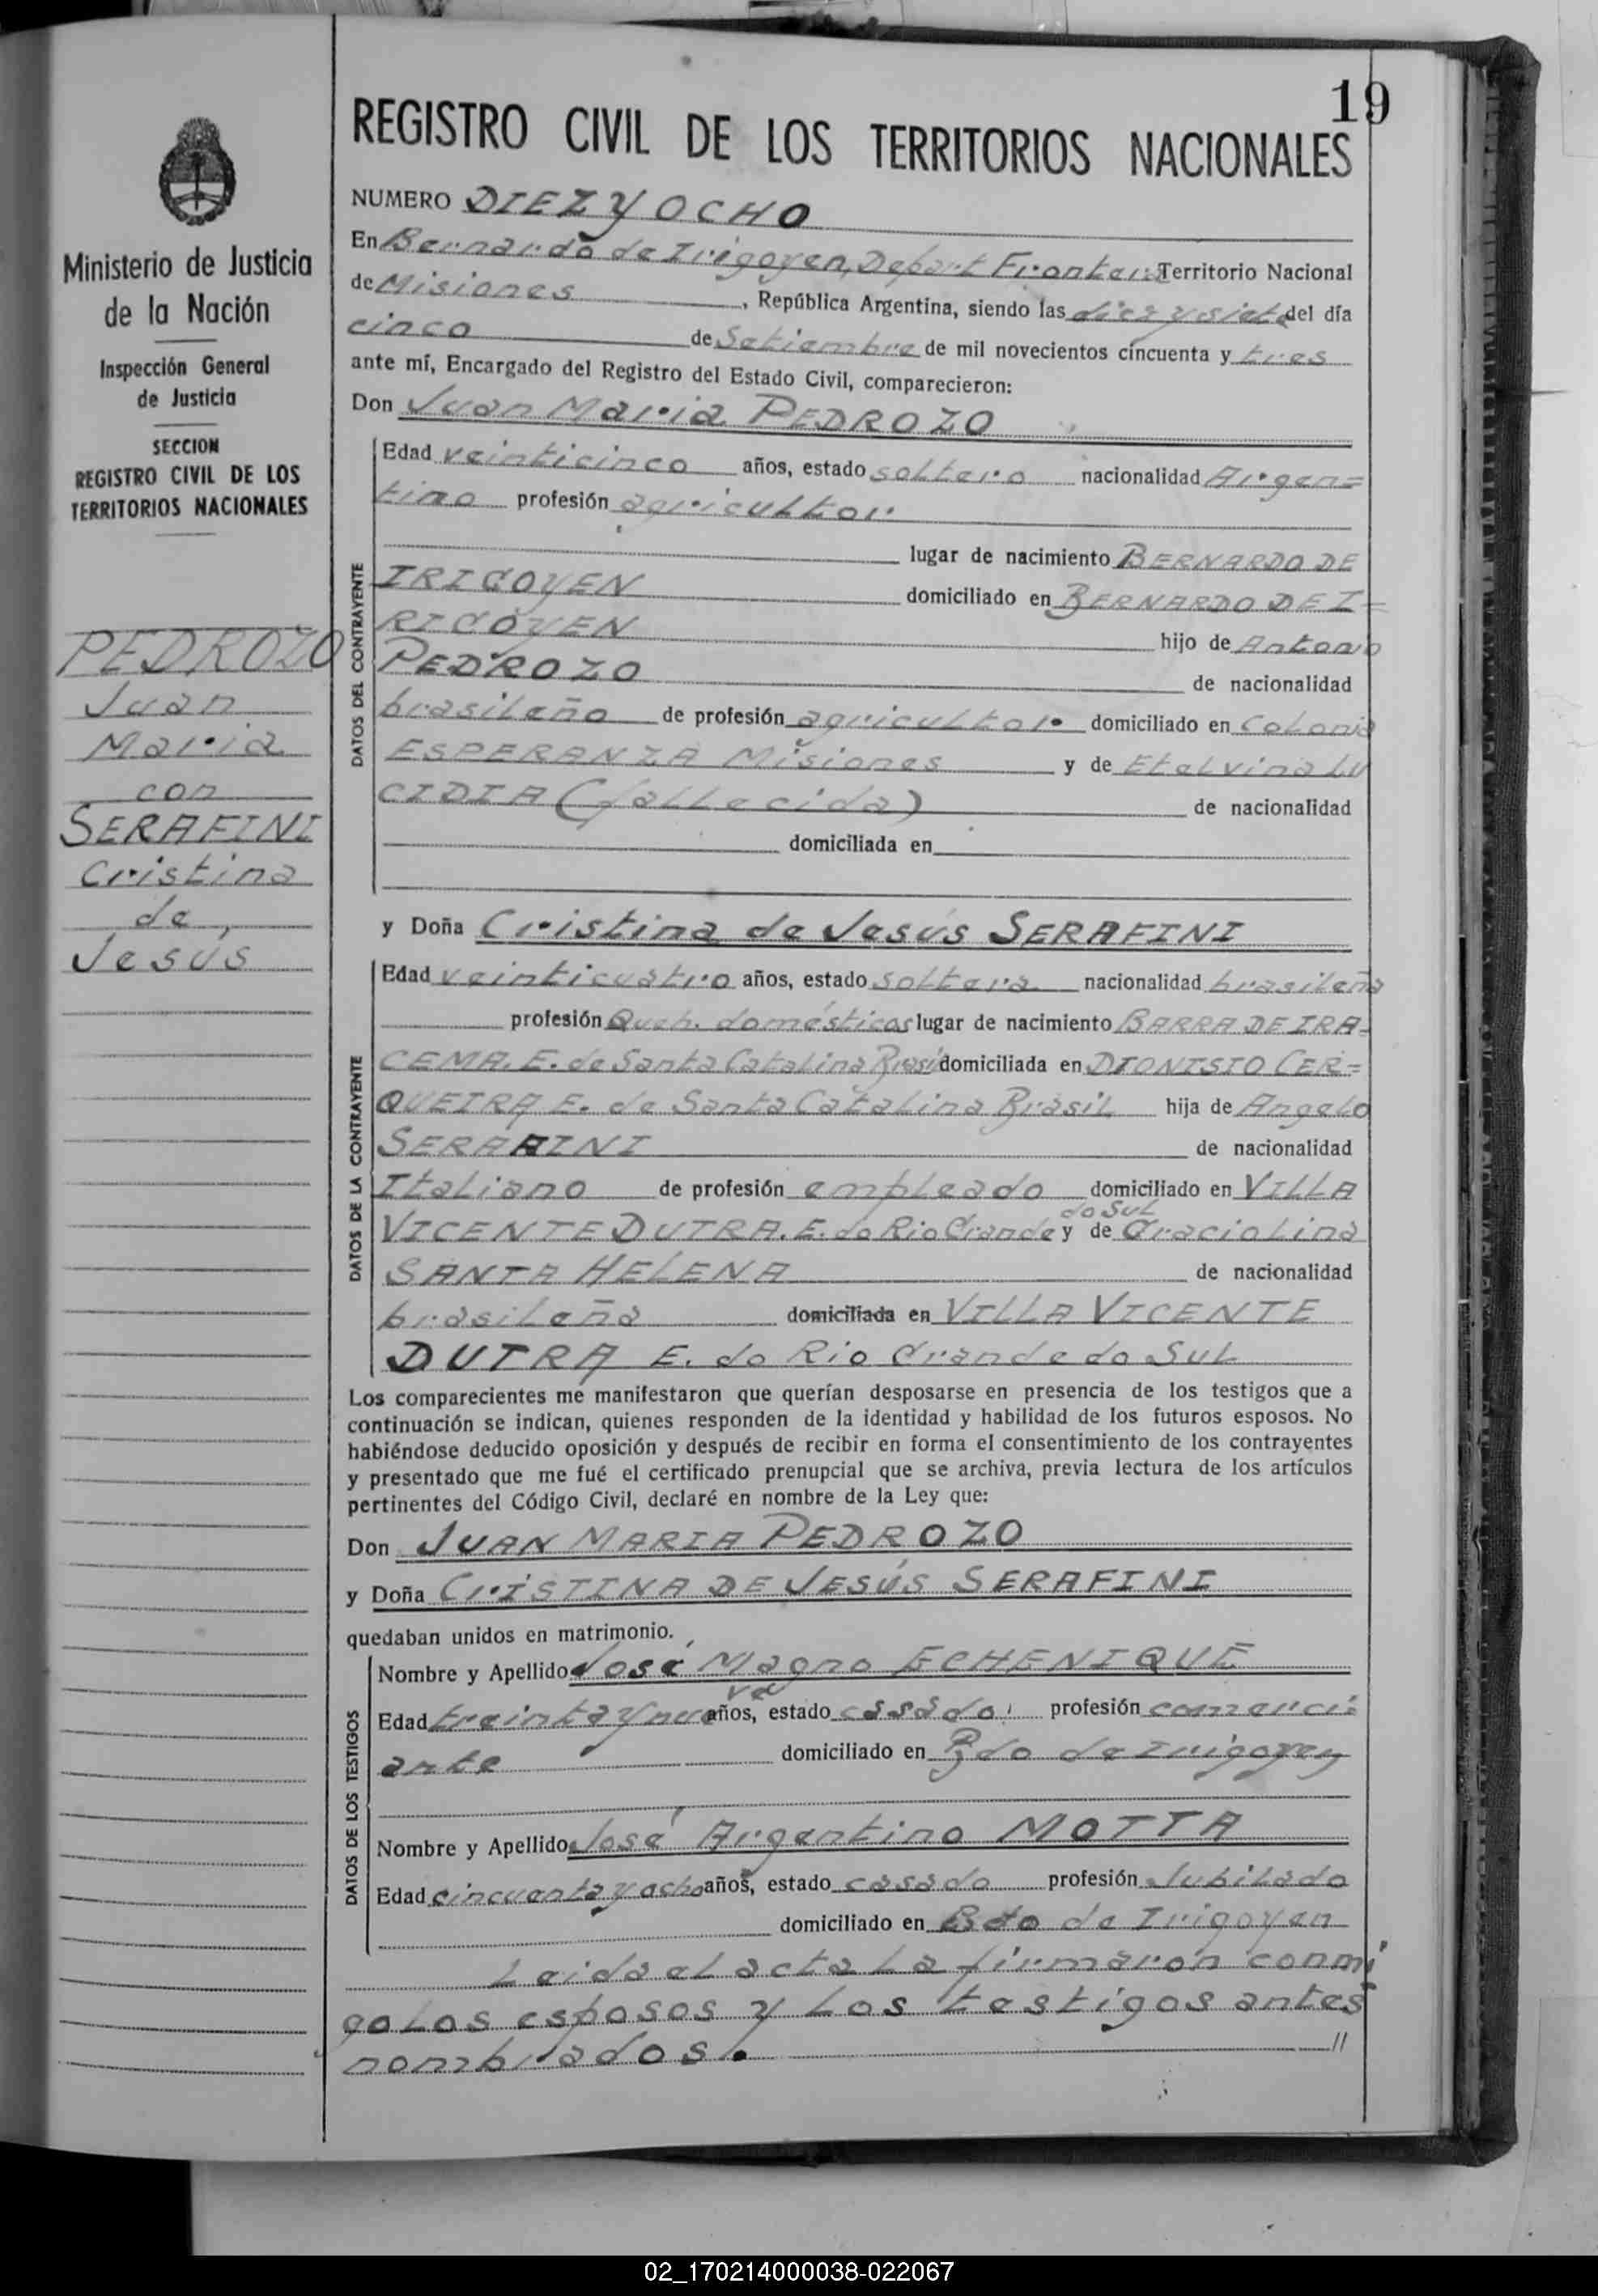 19
REGISTRO CIVIL DE LOS TERRITORIOS NACIONALES
Ministerio de Justicia
de la Nación
Inspección General
de Justicia
SECCION
REGISTRO CIVIL DE LOS
TERRITORIOS NACIONALES
PEDROZO
Juan
Maria
con
SERAFINI
Cristina
de
Jesús
NUMERO DIEZ Y OCHO
En Bernardo de Irigoyen, Depart Frontera Territorio Nacional
de Misiones, República Argentina, siendo las diez y siete del día
cinco de Setiembre de mil novecientos cincuenta y tres
ante mí, Encargado del Registro del Estado Civil, comparecieron:
Don Juan Maria PEDROZO
DATOS DEL CONTRAYENTE
Edad veinticinco años, estado soltero nacionalidad Argen=
tino profesión agricultor
lugar de nacimiento BERNARDO DE
IRIGOYEN domiciliado en BERNARDO DE I=
RIGOYEN hijo de Antonio
PEDROZO de nacionalidad
brasileño de profesión agricultor domiciliado en Colonia
ESPERANZA Misiones y de Etelvina LU
CIDIA (fallecida) de nacionalidad
domiciliada en
y Doña Cristina de Jesús SERAFINI
DATOS DE LA CONTRAYENTE
Edad veinticuatro años, estado soltera nacionalidad brasileña
profesión Queh. domésticos lugar de nacimiento BARRA DE IRA=
CEMA. E. de Santa Catalina Brasil domiciliada en DIONISIO CER=
QUEIRA E. de Santa Catalina Brasil hija de Angelo
SERAFINI de nacionalidad
Italiano de profesión empleado domiciliado en VILLA
VICENTE DUTRA. E. do Rio Grande do Sul y de Graciolina
SANTA HELENA de nacionalidad
brasileña domiciliada en VILLA VICENTE
DUTRA E. do Rio Grande do Sul
Los comparecientes me manifestaron que querían desposarse en presencia de los testigos que a
continuación se indican, quienes responden de la identidad y habilidad de los futuros esposos. No
habiéndose deducido oposición y después de recibir en forma el consentimiento de los contrayentes
y presentado que me fué el certificado prenupcial que se archiva, previa lectura de los artículos
pertinentes del Código Civil, declaré en nombre de la Ley que:
Don JUAN MARIA PEDROZO
y Doña CRISTINA DE JESÚS SERAFINI
quedaban unidos en matrimonio.
DATOS DE LOS TESTIGOS
Nombre y Apellido José Magno ECHENIQUE
Edad treinta y nueve años, estado casado profesión comerci=
ante domiciliado en Bdo de Irigoyen
Nombre y Apellido José Argentino MOTTA
Edad cincuenta y ocho años, estado casado profesión Jubilado
domiciliado en Bdo de Irigoyen
Leida el acta la firmaron conmi
go los esposos y los testigos antes
nombrados. //
02_170214000038-022067